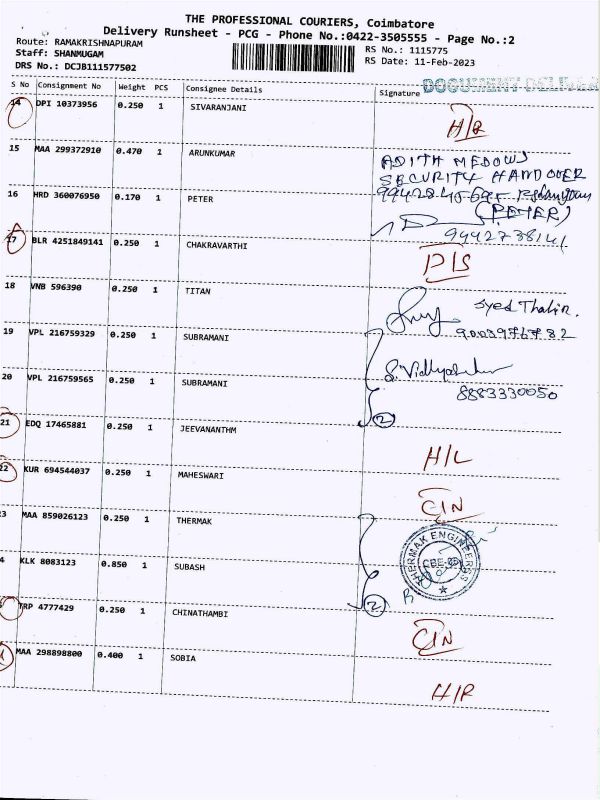 THE PROFESSIONAL COURIERS, Coimbatore
Delivery Runsheet - PCG - Phone No.:0422-3505555 - Page No.:2
Route: RAMAKRISHNAPURAM
Staff: SHANMUGAM
DRS No.: DCJB111577502
RS No.: 1115775
RS Date: 11-Feb-2023
S No Consignment No Weight PCS Consignee Details Signature
14 DPI 10373956 0.250 1 SIVARANJANI
15 MAA 299372910 0.470 1 ARUNKUMAR ADITH MEDOWS
SECURITY HANDOVER
16 HRD 360076950 0.170 1 PETER
(PETER)
9442738141
17 BLR 4251849141 0.250 1 CHAKRAVARTHI
18 VNB 596390 0.250 1 TITAN
19 VPL 216759329 0.250 1 SUBRAMANI
20 VPL 216759565 0.250 1 SUBRAMANI
8883330050
2
21 EDQ 17465881 0.250 1 JEEVANANTHM H/L
22 KUR 694544037 0.250 1 MAHESWARI CIN
3 MAA 859026123 0.250 1 THERMAK
THERMAK ENGINEERS
4 KLK 8083123 0.850 1 SUBASH
2
TRP 4777429 0.250 1 CHINATHAMBI CIN
MAA 298898800 0.400 1 SOBIA